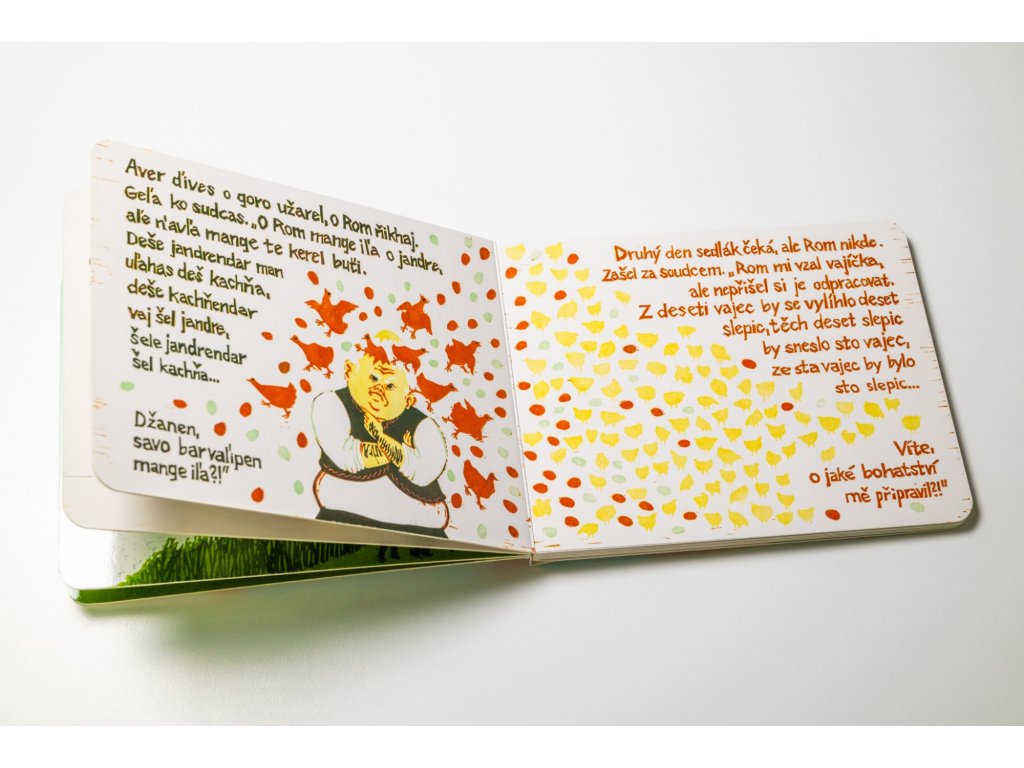 Aver ďives o goro užarel, o Rom ňikhaj.
Geľa ko sudcas. „O Rom mange iľa o jandre,
aľe n'avľa mange te kerel buťi.
Deše jandrendar man
uľahas deš kachňa,
deše kachňendar
vaj šel jandre,
šele jandrendar
šel kachňa...
Džanen,
savo barvaľipen
mange iľa?!"
Druhý den sedlák čeká, ale Rom nikde.
Zašel za soudcem. „Rom mi vzal vajíčka,
ale nepřišel si je odpracovat.
Z deseti vajec by se vylíhlo deset
slepic, těch deset slepic
by sneslo sto vajec,
ze sta vajec by bylo
sto slepic...
Víte,
o jaké bohatství
mě připravil?!"